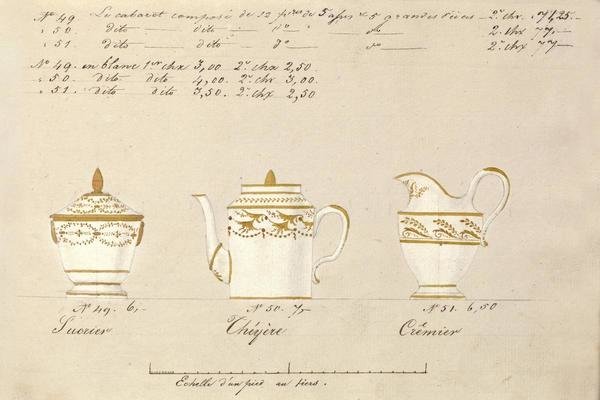 Nº 49. Le cabaret composé de 12 pces de 5 asses & 5 grandes pièces 2e. chx. 71,25.
" 50. dito dito do do 2. chx 77.
" 51. dito dito do do 2e chx 77
Nº 49. en blanc 1er chx 3,00 2e. chx 2,50
" 50. dito dito 4,00. 2e chx 3,00
" 51. dito dito 3,50. 2. chx 2,50
Nº 49. 6,- Nº 50. 7,- Nº 51. 6,50
Sucrier Théyère Crêmier
Echelle d'un pied au tiers.